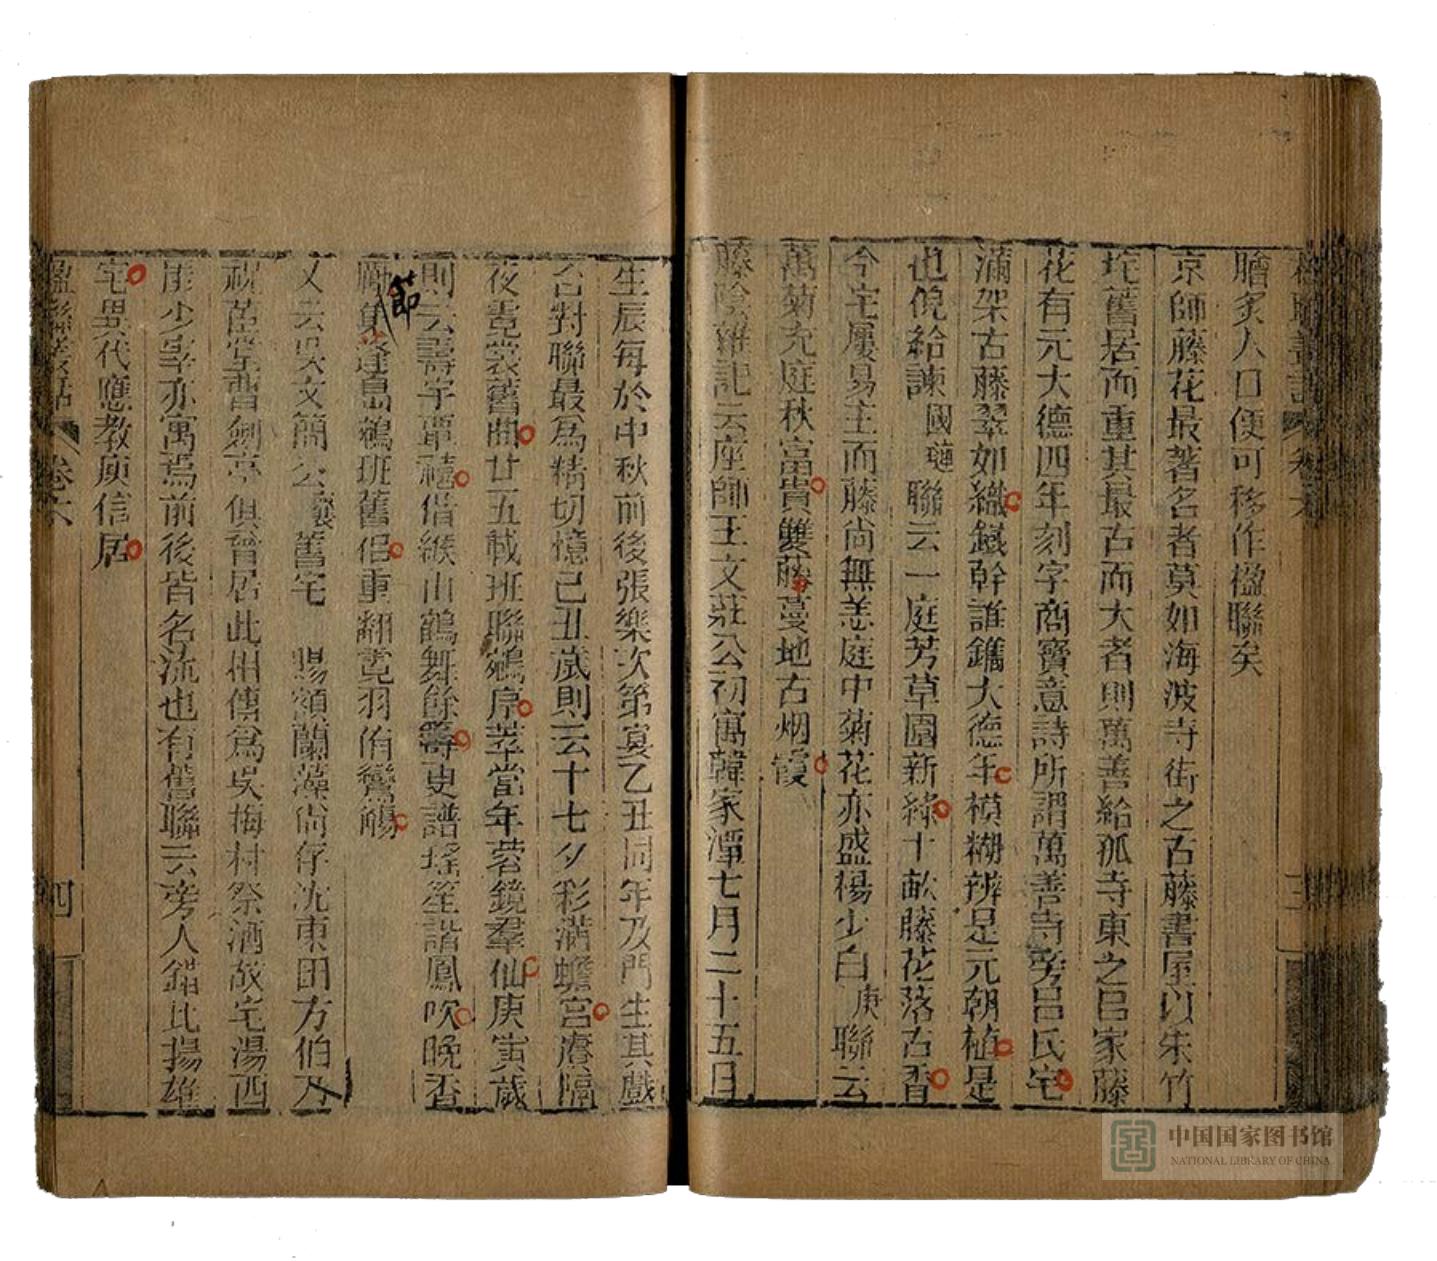 膾炙人口便可移作楹聯矣
京師藤花最著名者莫如海波寺街之古藤書屋以朱竹
垞舊居而重其最古而大者則萬善給孤寺東之呂家藤
花有元大德四年刻字商寶意詩所謂萬善寺旁呂氏宅
滿架古藤翠如織鐵幹誰鐫大德年模糊辨是元朝植是
也倪給諫國璉聯云一庭芳草圍新綠十畝藤花落古香
今宅屢易主而藤尚無恙庭中菊花亦盛楊少白庚聯云
萬菊充庭秋富貴雙藤蔓地古烟霞
藤陰雜記云座師王文莊公初寓韓家潭七月二十五日
生辰每於中秋前後張樂次第宴乙丑同年及門生其戲
台對聯最為精切憶己丑歲則云十七夕彩滿蟾宮賡隔
夜霓裳舊曲廿五載班聯鵷序萃當年蓉鏡羣仙庚寅歲
則云壽字耶禧借緱山鶴舞餘籌更譜瑤笙諧鳳吹晚香
節
勵集逢島鵜班舊侶重翻霓羽侑鸞觴
又云吳文簡公襄舊宅 賜額蘭藻尚存沈東田方伯乃
祝茞堂曹劍亭俱曾居此相傳爲吳梅村祭酒故宅湯西
崖少宰亦寓焉前後皆名流也有舊聯云旁人錯比揚雄
宅異代應教庾信居
楹聯叢話 卷六 四
中国国家图书馆
NATIONAL LIBRARY OF CHINA